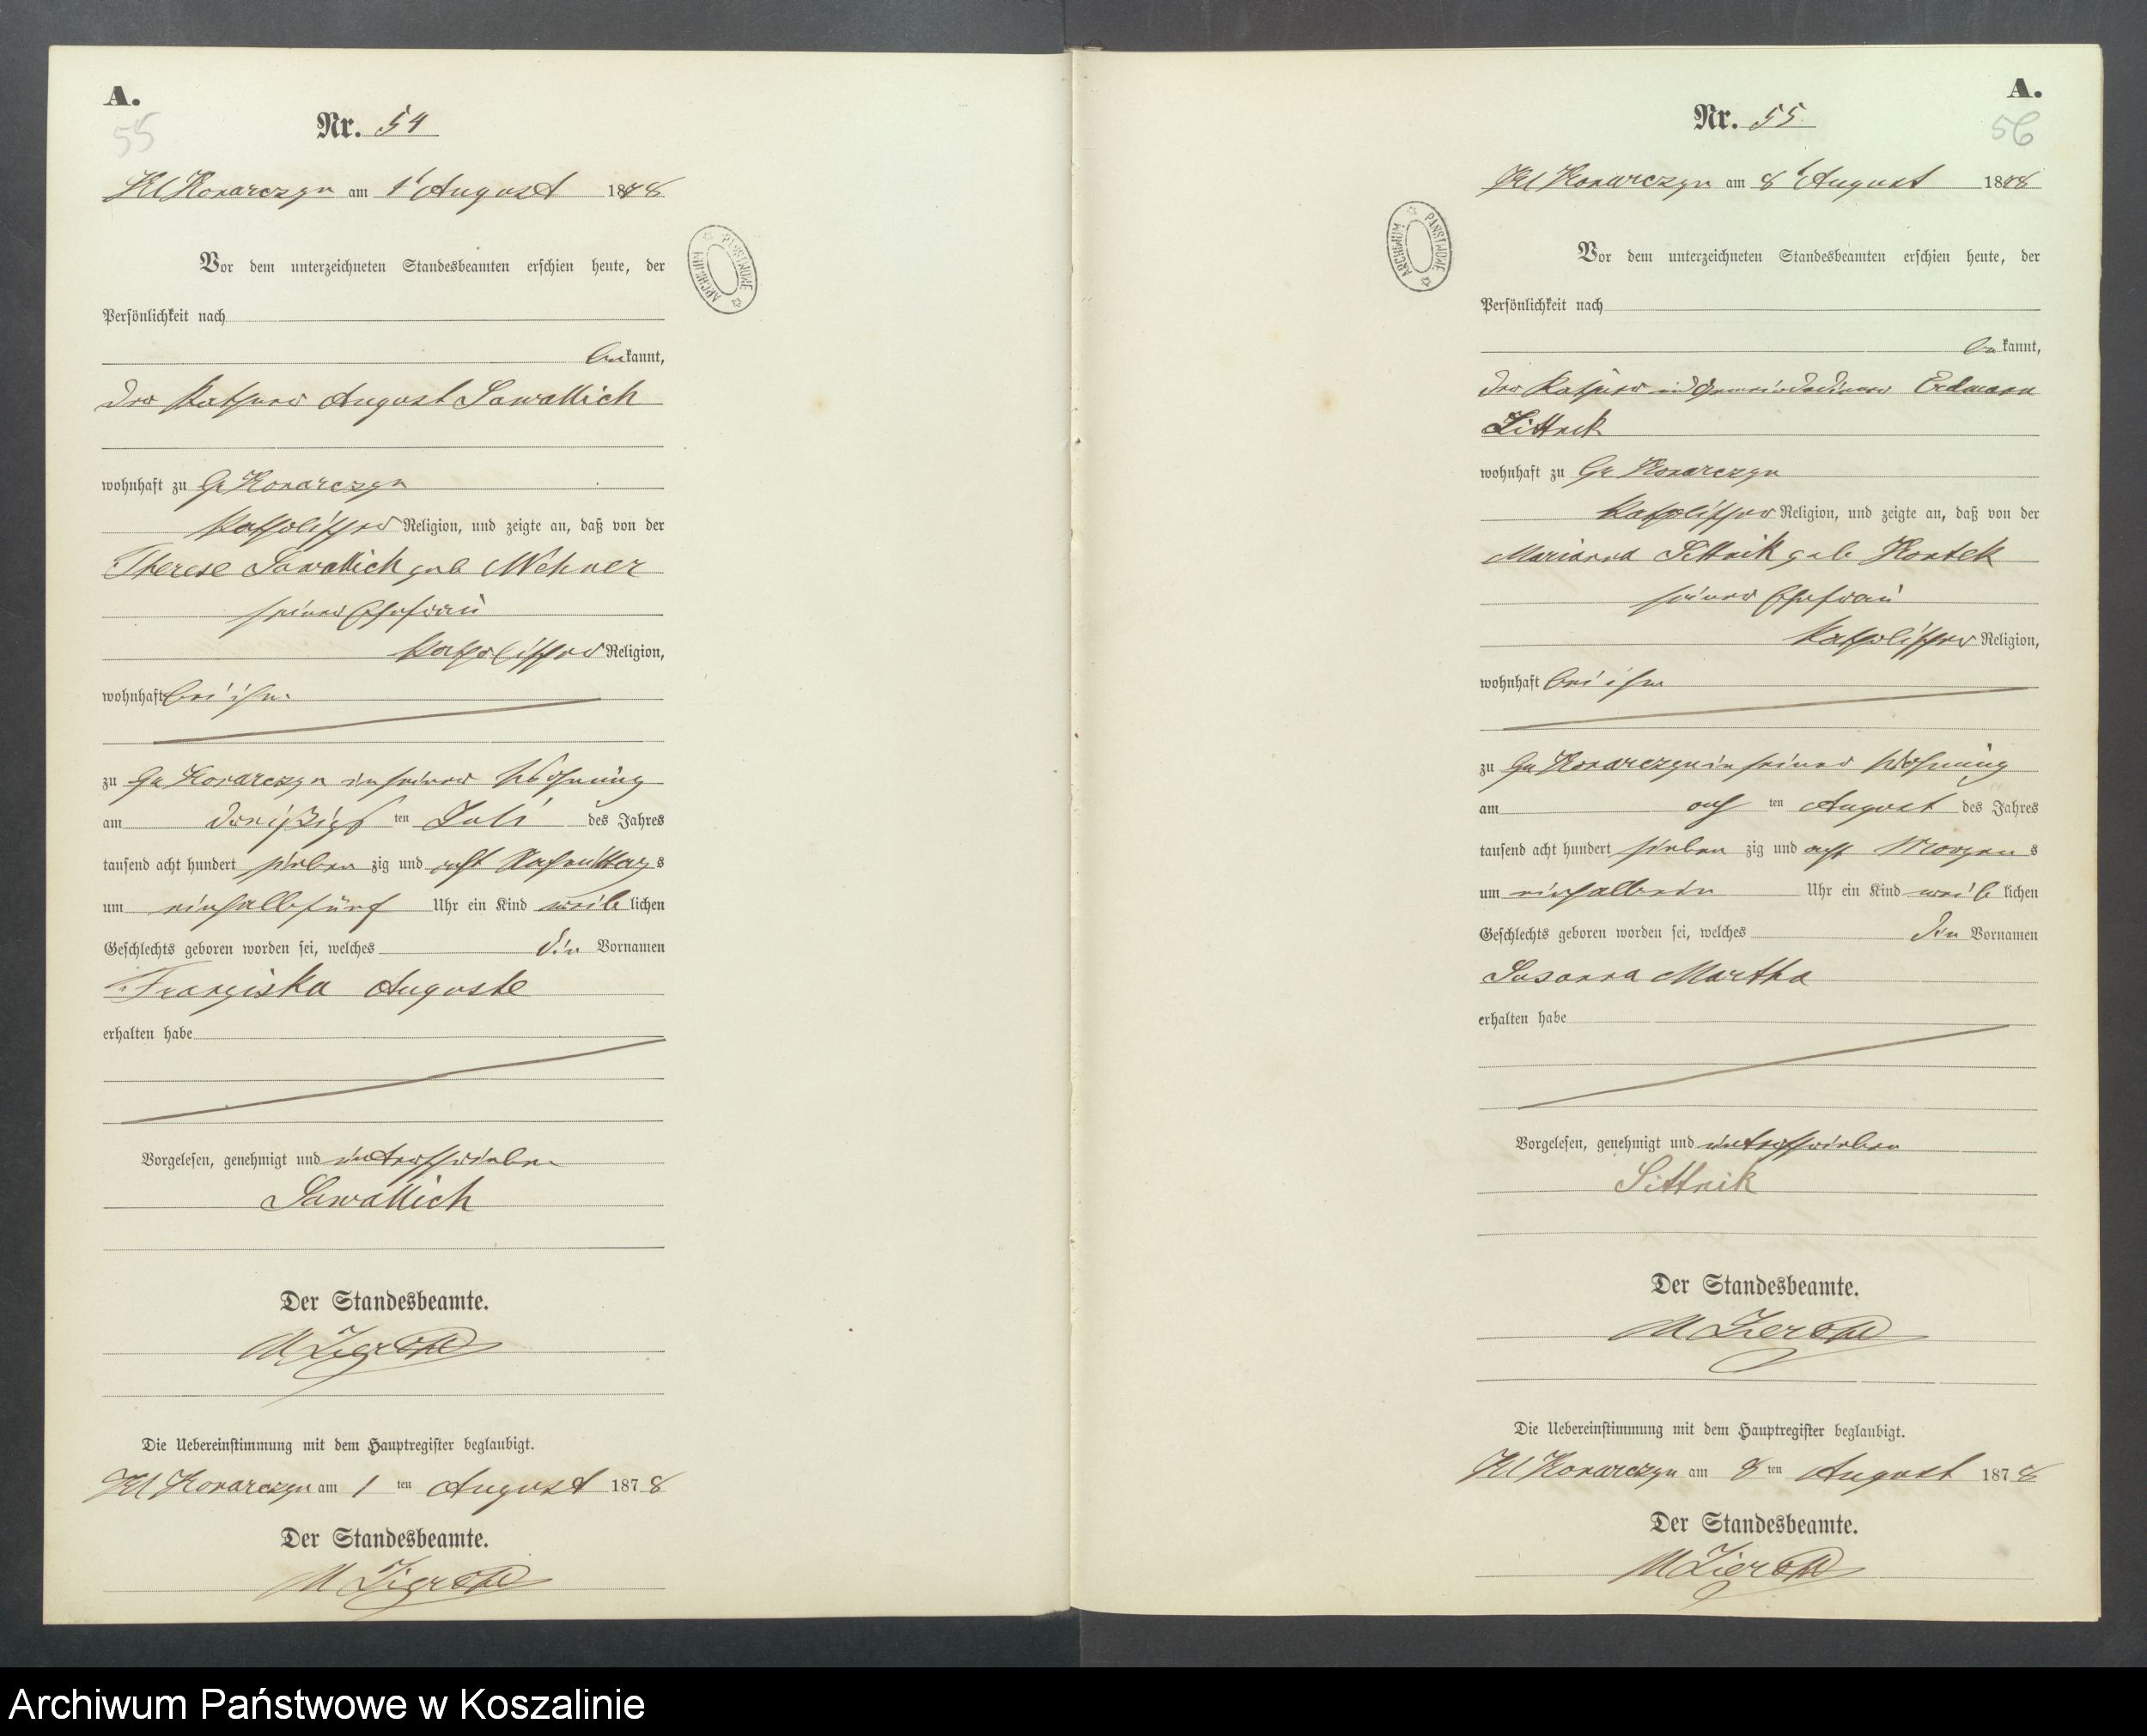 A.
55
Nr. 54
Kl Konarczyn am 1t August 1878
Vor dem unterzeichneten Standesbeamten erschien heute, der
Persönlichkeit nach
bekannt,
der Kathner August Sawallich
wohnhaft zu Gr Konarczyn
katholischer Religion, und zeigte an, daß von der
Therese Sawallich geb Wehner
seiner Ehefrau
katholischer Religion,
wohnhaft bei ihm
zu Gr Konarczyn in seiner Wohnung
am dreißigsten Juli des Jahres
tausend acht hundert siebenzig und acht Nachmittags
um einhalbfünf Uhr ein Kind weiblichen
Geschlechts geboren worden sei, welches die Vornamen
Franziska Auguste
erhalten habe
Vorgelesen, genehmigt und unterschrieben
Sawallich
Der Standesbeamte.
Die Uebereinstimmung mit dem Hauptregister beglaubigt.
Kl Konarczyn am 1 ten August 1878
Der Standesbeamte.
A.
56
Nr. 55
Kl Konarczyn am 8t August 1878
Vor dem unterzeichneten Standesbeamten erschien heute, der
Persönlichkeit nach
bekannt,
der Kathner und Gemeindediener Erdmann
Sittnik
wohnhaft zu Gr Konarczyn
katholischer Religion, und zeigte an, daß von der
Marianna Sittnik geb Kontek
seiner Ehefrau
katholischer Religion,
wohnhaft bei ihm
zu Gr Konarczyn in seiner Wohnung
am achten August des Jahres
tausend acht hundert siebenzig und acht Morgens
um Uhr ein Kind weiblichen
Geschlechts geboren worden sei, welches die Vornamen
Susanna Martha
erhalten habe
Vorgelesen, genehmigt und unterschrieben
Sittnik
Der Standesbeamte.
Die Uebereinstimmung mit dem Hauptregister beglaubigt.
Kl Konarczyn am 8 ten August 1878
Der Standesbeamte.
ARCHIWUM PAŃSTWOWE
ARCHIWUM PAŃSTWOWE
Archiwum Państwowe w Koszalinie